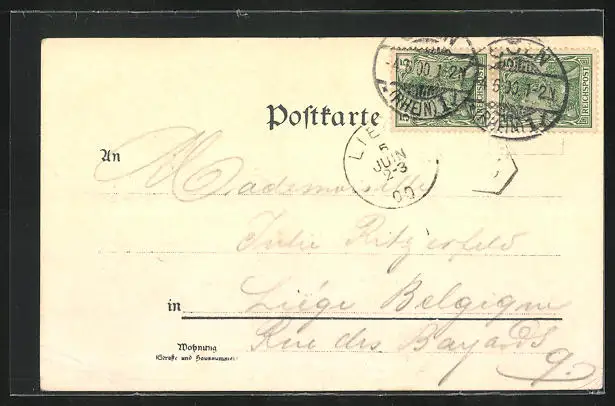 CÖLN
4.6.00.1-2N
(RHEIN) 1
5
REICHSPOST
CÖLN
6.00.1-2N
(RHEIN) 1
REICHSPOST
Postkarte
LIE
5
JUIN
2-3
00
An
Mademoiselle
Julie Ritzerfeld
in Liége Belgique
Wohnung
(Straße und Hausnummer)
Rue des Bayards
9.